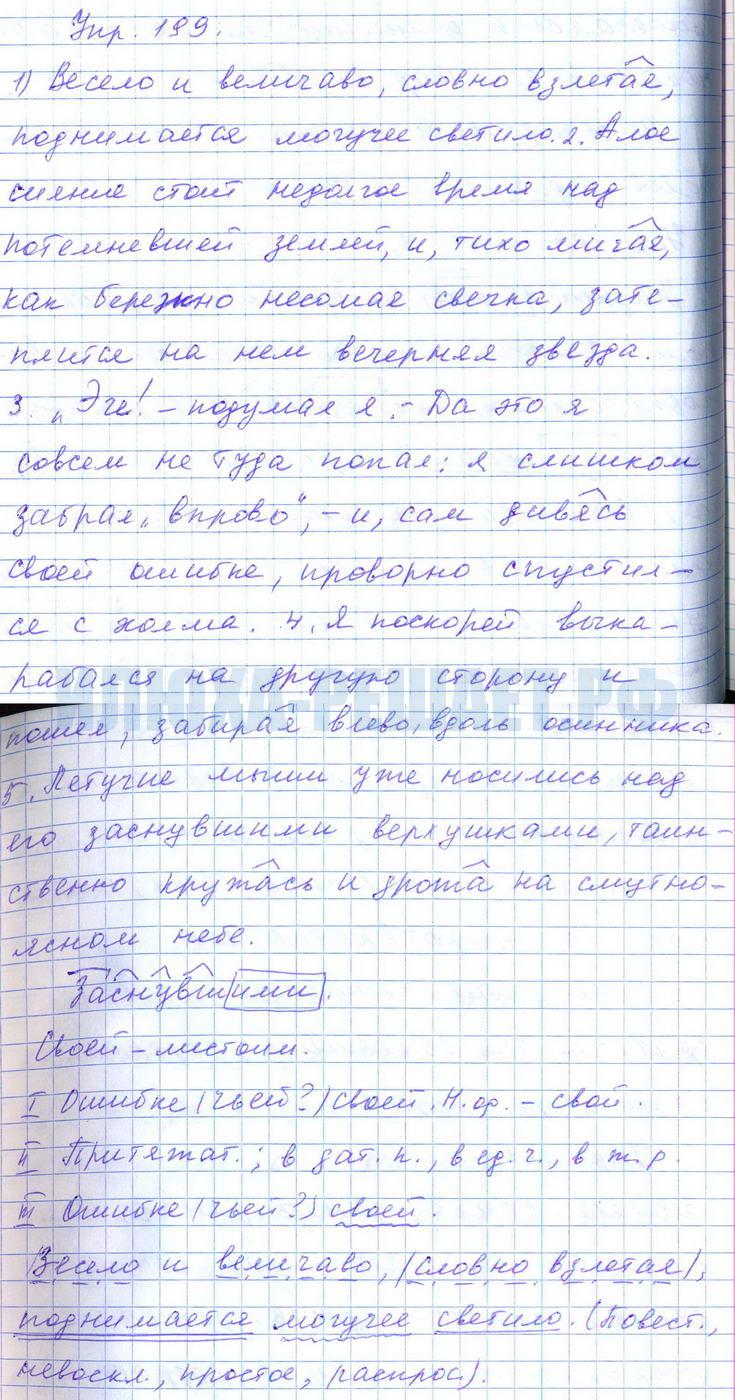 Упр. 199.
1) Весело и величаво, словно взлетая,
поднимается могучее светило. 2. Алое
сияние стоит недолгое время над
потемневшей землей, и, тихо мигая,
как бережно несомая свечка, зате-
плится на нем вечерняя звезда.
3. „Эге! – подумал я. – Да это я
совсем не туда попал: я слишком
забрал „вправо“, – и, сам дивясь
своей ошибке, проворно спустил-
ся с холма. 4. Я поскорей выка-
рабался на другую сторону и
ИЛЮХА-РЕШАЕТ.РФ
пошел, забирая влево, вдоль осинника.
5. Летучие мыши уже носились над
его заснувшими верхушками, таин-
ственно кружась и дрожа на смутно-
ясном небе.
Заснувшими.
Своей – местоим.
I Ошибке (чьей?) своей. Н.ф. – свой.
II Притяжат.; в дат. п., в ед. ч., в ж. р.
III Ошибке (чьей?) своей.
Весело и величаво, (словно взлетая),
поднимается могучее светило. (Повест.,
невоскл., простое, распрос.).